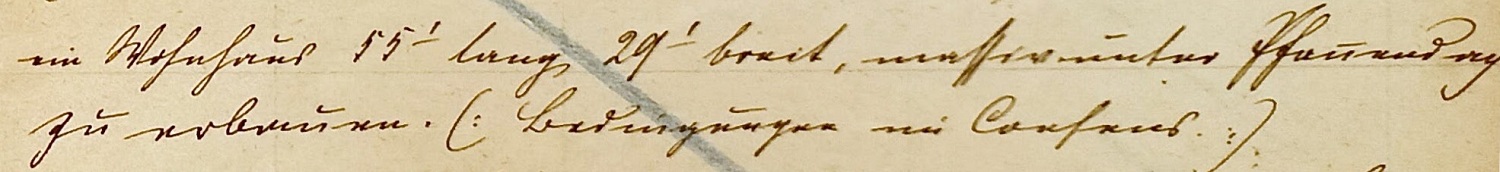 ein Wohnhaus 55' lang 29' breit, massiv unter Pfannendach
zu erbauen. (: Bedingungen im Consens. :)